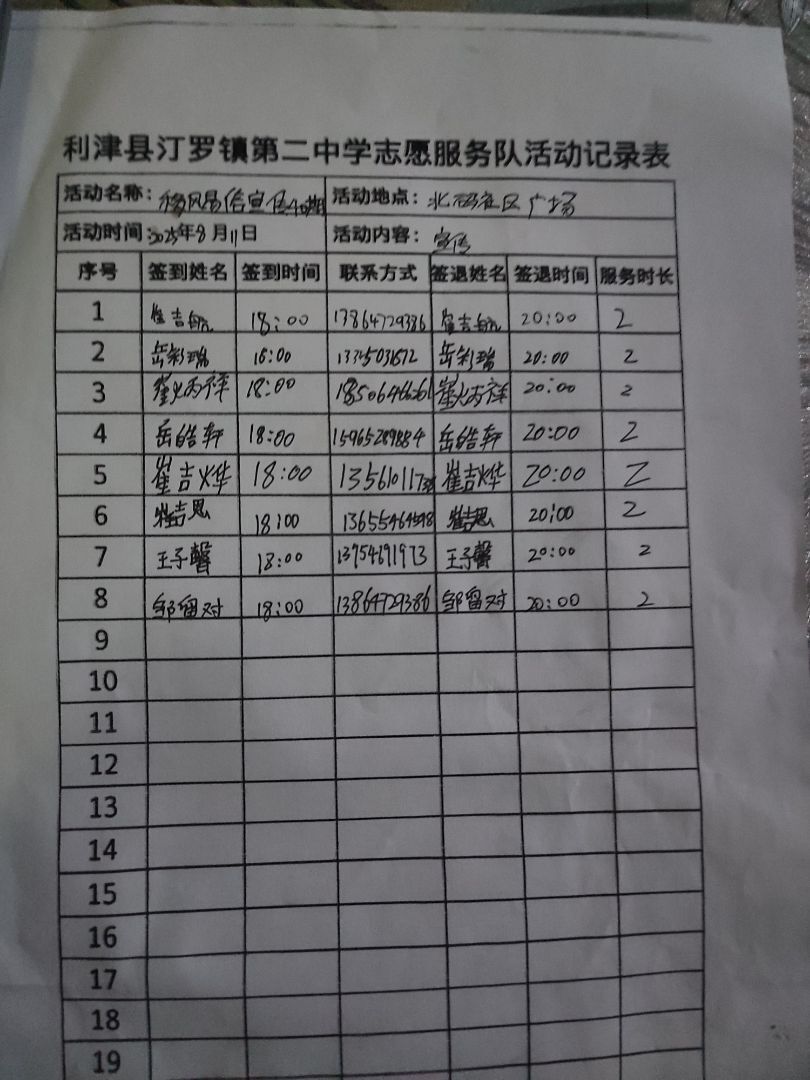 利津县汀罗镇第二中学志愿服务队活动记录表
活动名称：移风易俗宣传 活动地点：社区广场
活动时间：2025年8月11日 活动内容：宣传
序号 签到姓名 签到时间 联系方式 签退姓名 签退时间 服务时长
1 崔吉航 18:00 13864729386 崔吉航 20:00 2
2 岳彩瑞 18:00 岳彩瑞 20:00 2
3 崔炳祥 18:00 崔炳祥 20:00 2
4 岳皓轩 18:00 15965289884 岳皓轩 20:00 2
5 崔吉烨 18:00 崔吉烨 20:00 2
6 崔吉思 18:00 崔吉思 20:00 2
7 王子馨 18:00 王子馨 20:00 2
8 邹留对 18:00 13864729386 邹留对 20:00 2
9
10
11
12
13
14
15
16
17
18
19